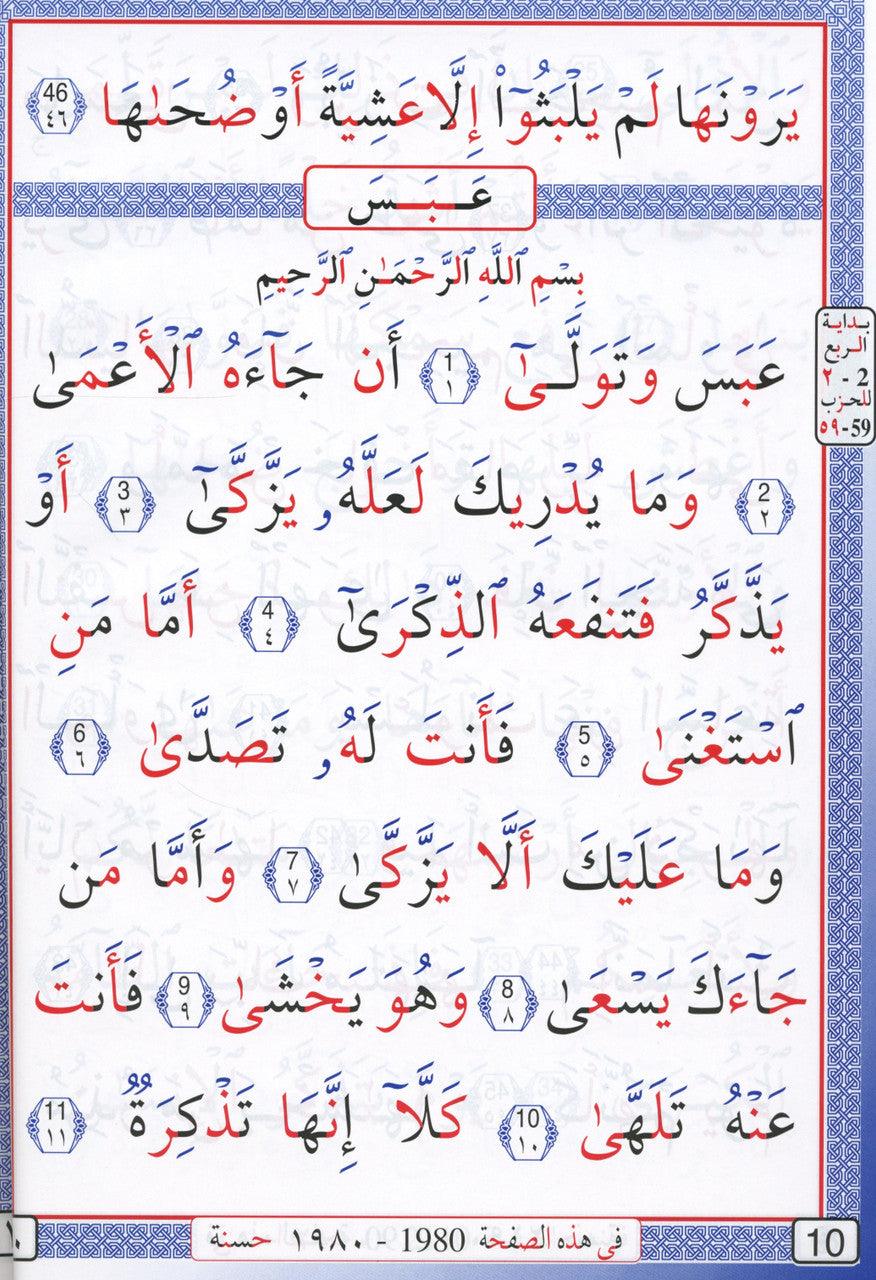 يَرَوْنَهَا لَمْ يَلْبَثُوٓا۟ إِلَّا عَشِيَّةً أَوْ ضُحَىٰهَا 46 ٤٦
عَبَسَ
بِسْمِ ٱللَّهِ ٱلرَّحْمَـٰنِ ٱلرَّحِيمِ
عَبَسَ وَتَوَلَّىٰٓ 1 ١ أَن جَآءَهُ ٱلْأَعْمَىٰ
بداية
الربع
2 - ٢
للحزب
59-٥٩
2 ٢ وَمَا يُدْرِيكَ لَعَلَّهُۥ يَزَّكَّىٰٓ 3 ٣ أَوْ
يَذَّكَّرُ فَتَنفَعَهُ ٱلذِّكْرَىٰٓ 4 ٤ أَمَّا مَنِ
ٱسْتَغْنَىٰ 5 ٥ فَأَنتَ لَهُۥ تَصَدَّىٰ 6 ٦
وَمَا عَلَيْكَ أَلَّا يَزَّكَّىٰ 7 ٧ وَأَمَّا مَن
جَآءَكَ يَسْعَىٰ 8 ٨ وَهُوَ يَخْشَىٰ 9 ٩ فَأَنتَ
عَنْهُ تَلَهَّىٰ 10 ١٠ كَلَّآ إِنَّهَا تَذْكِرَةٌ 11 ١١
في هذه الصفحة 1980 - ١٩٨٠ حسنة
10